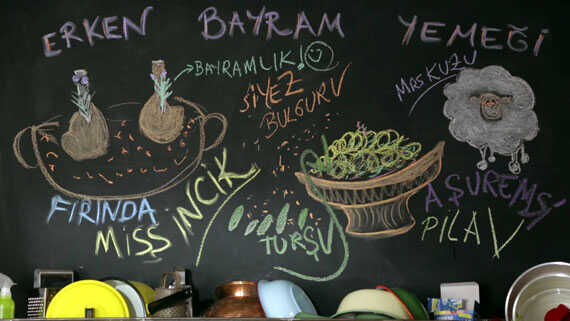 ERKEN BAYRAM YEMEĞİ
BAYRAMLIK!
ŞİYEZ
BULGURU
MRS KUZU
FIRINDA
MİSS İNCİK
TURŞU
AŞUREMSİ
PİLAV